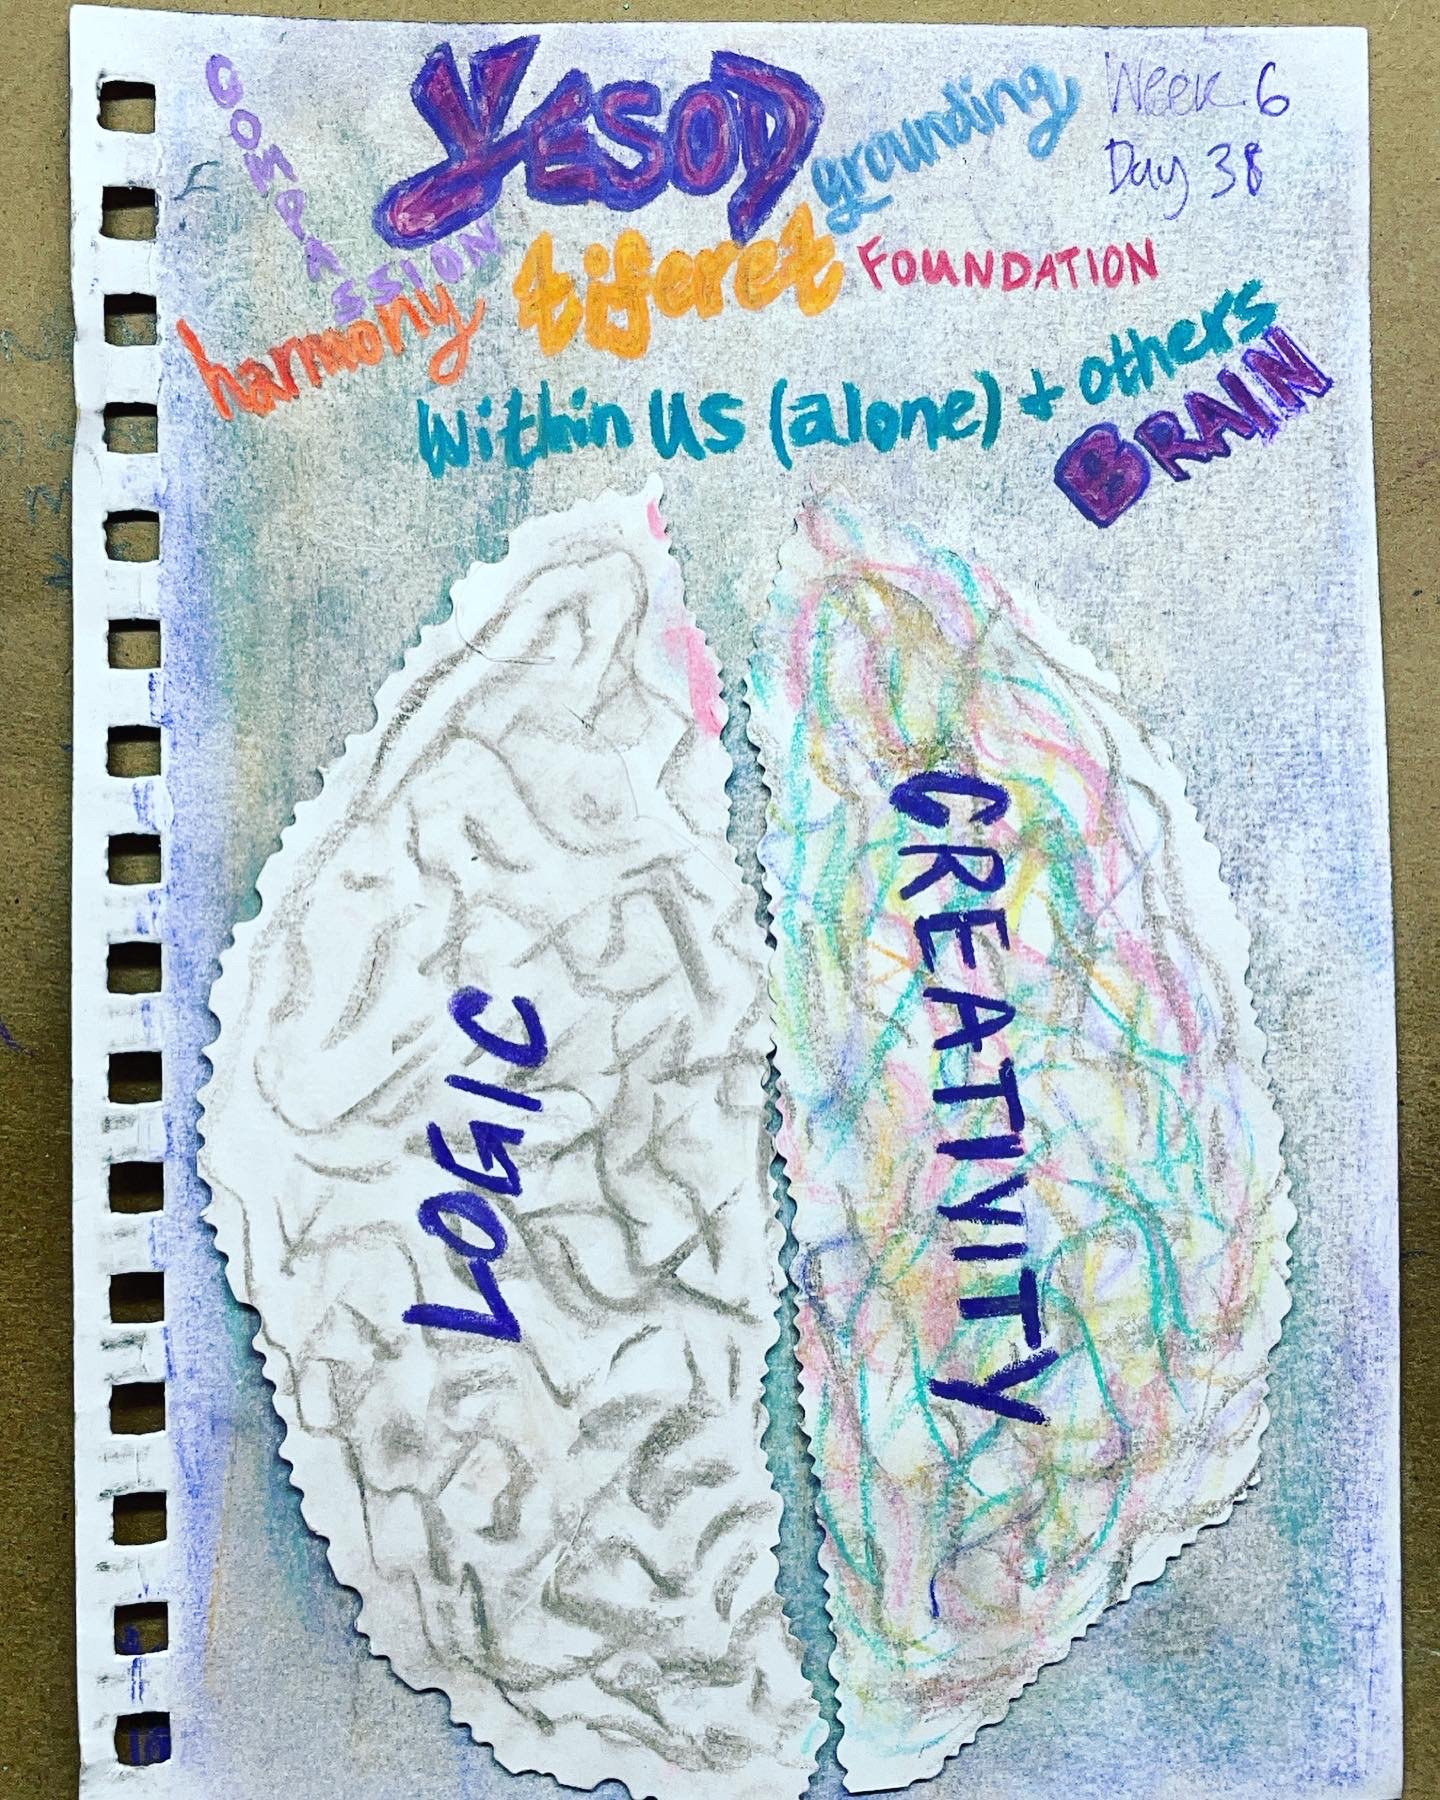 COMPASSION
YESOD
grounding
Week 6
Day 38
harmony
tiferet
FOUNDATION
Within us (alone) + others
BRAIN
LOGIC
CREATIVITY